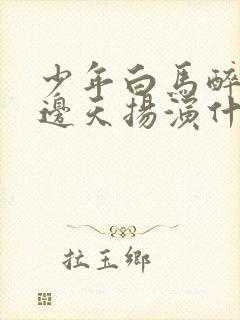 少年白馬醉
邊天揚演什
拉玉鄉